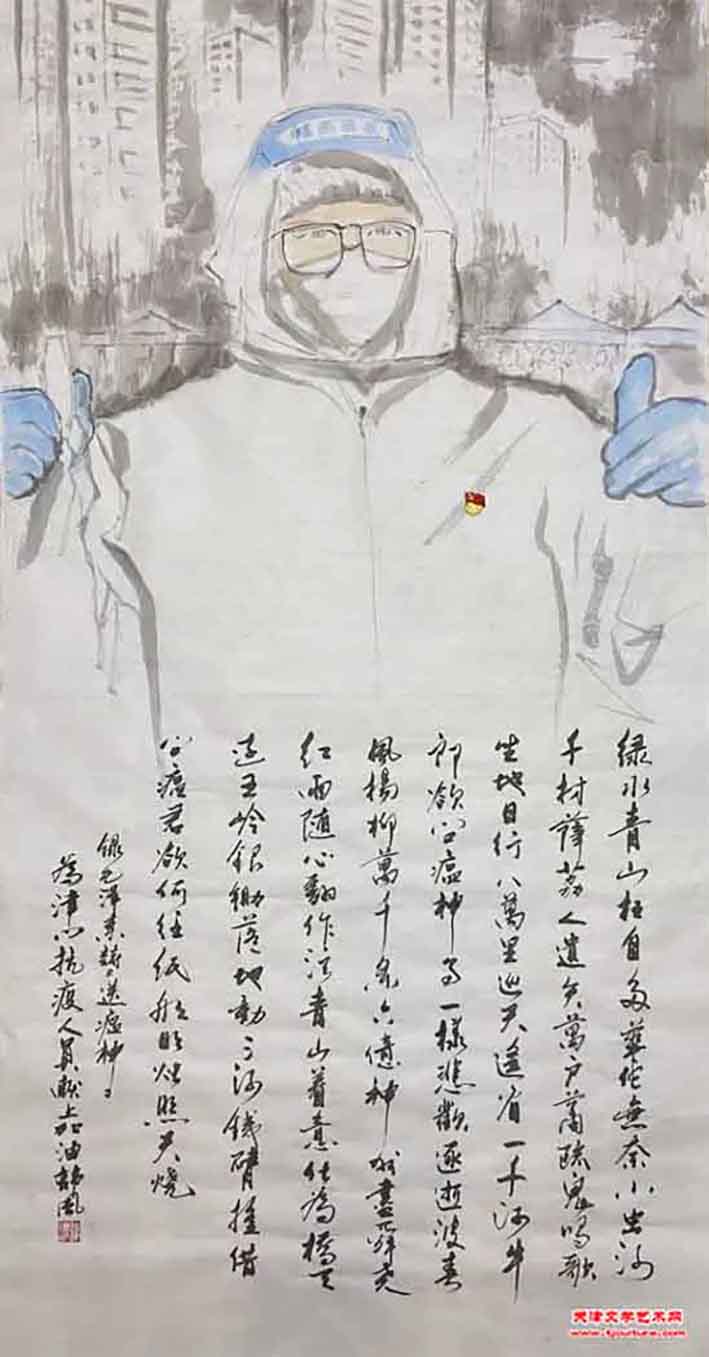 绿水青山枉自多華佗無奈小虫河
千村薜荔人遺矢萬户蕭疏鬼唱歌
坐地日行八萬里巡天遥看一千河牛
郎欲问瘟神事一樣悲歡逐逝波春
風楊柳萬千条六億神州盡舜尧
红雨随心翻作浪青山着意化為橋天
连五岭银锄落地動三河鐵臂摇借
问瘟君欲何往纸船明烛照天烧
録毛泽東詩送瘟神
為津门抗疫人員献上加油
天津文学艺术网